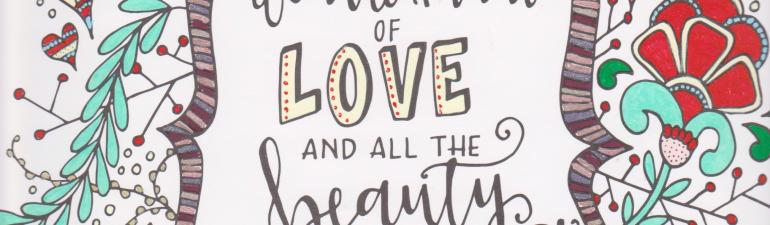 OF
LOVE
AND ALL THE
beauty